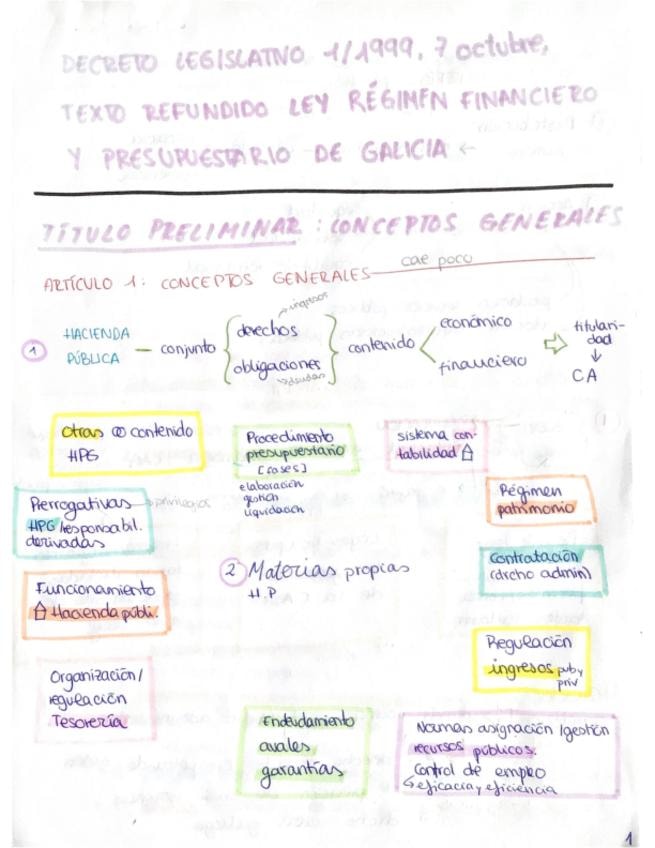 DECRETO LEGISLATIVO 1/1999, 7 octubre,
TEXTO REFUNDIDO LEY RÉGIMEN FINANCIERO
Y PRESUPUESTARIO DE GALICIA ←
TÍTULO PRELIMINAR : CONCEPTOS GENERALES
ARTÍCULO 1: CONCEPTOS GENERALES cae poco
1 HACIENDA PÚBLICA – conjunto
derechos → ingresos
obligaciones → deudas
contenido
económico
financiero
titulari-
dad
↓
CA
Otras contenido
HPG
Procedimiento
presupuestario
[fases]
elaboración
gestión
liquidación
sistema con-
tabilidad
Régimen
patrimonio
Prerrogativas → privilegios
HPG/responsabil.
derivadas
2 Materias propias
H.P
Contratación
(drcho admin)
Funcionamiento
Hacienda públi.
Regulación
ingresos pub y
priv
Organización/
regulación
Tesorería
Endeudamiento
avales
garantías
Normas asignación/gestión
recursos públicos.
Control de empleo
↳ eficacia y eficiencia
1